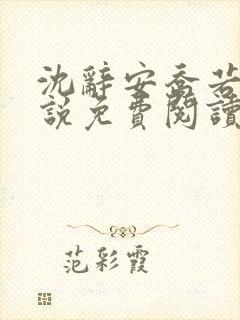 沈辭安喬若
說免費閱讀
范彩霞